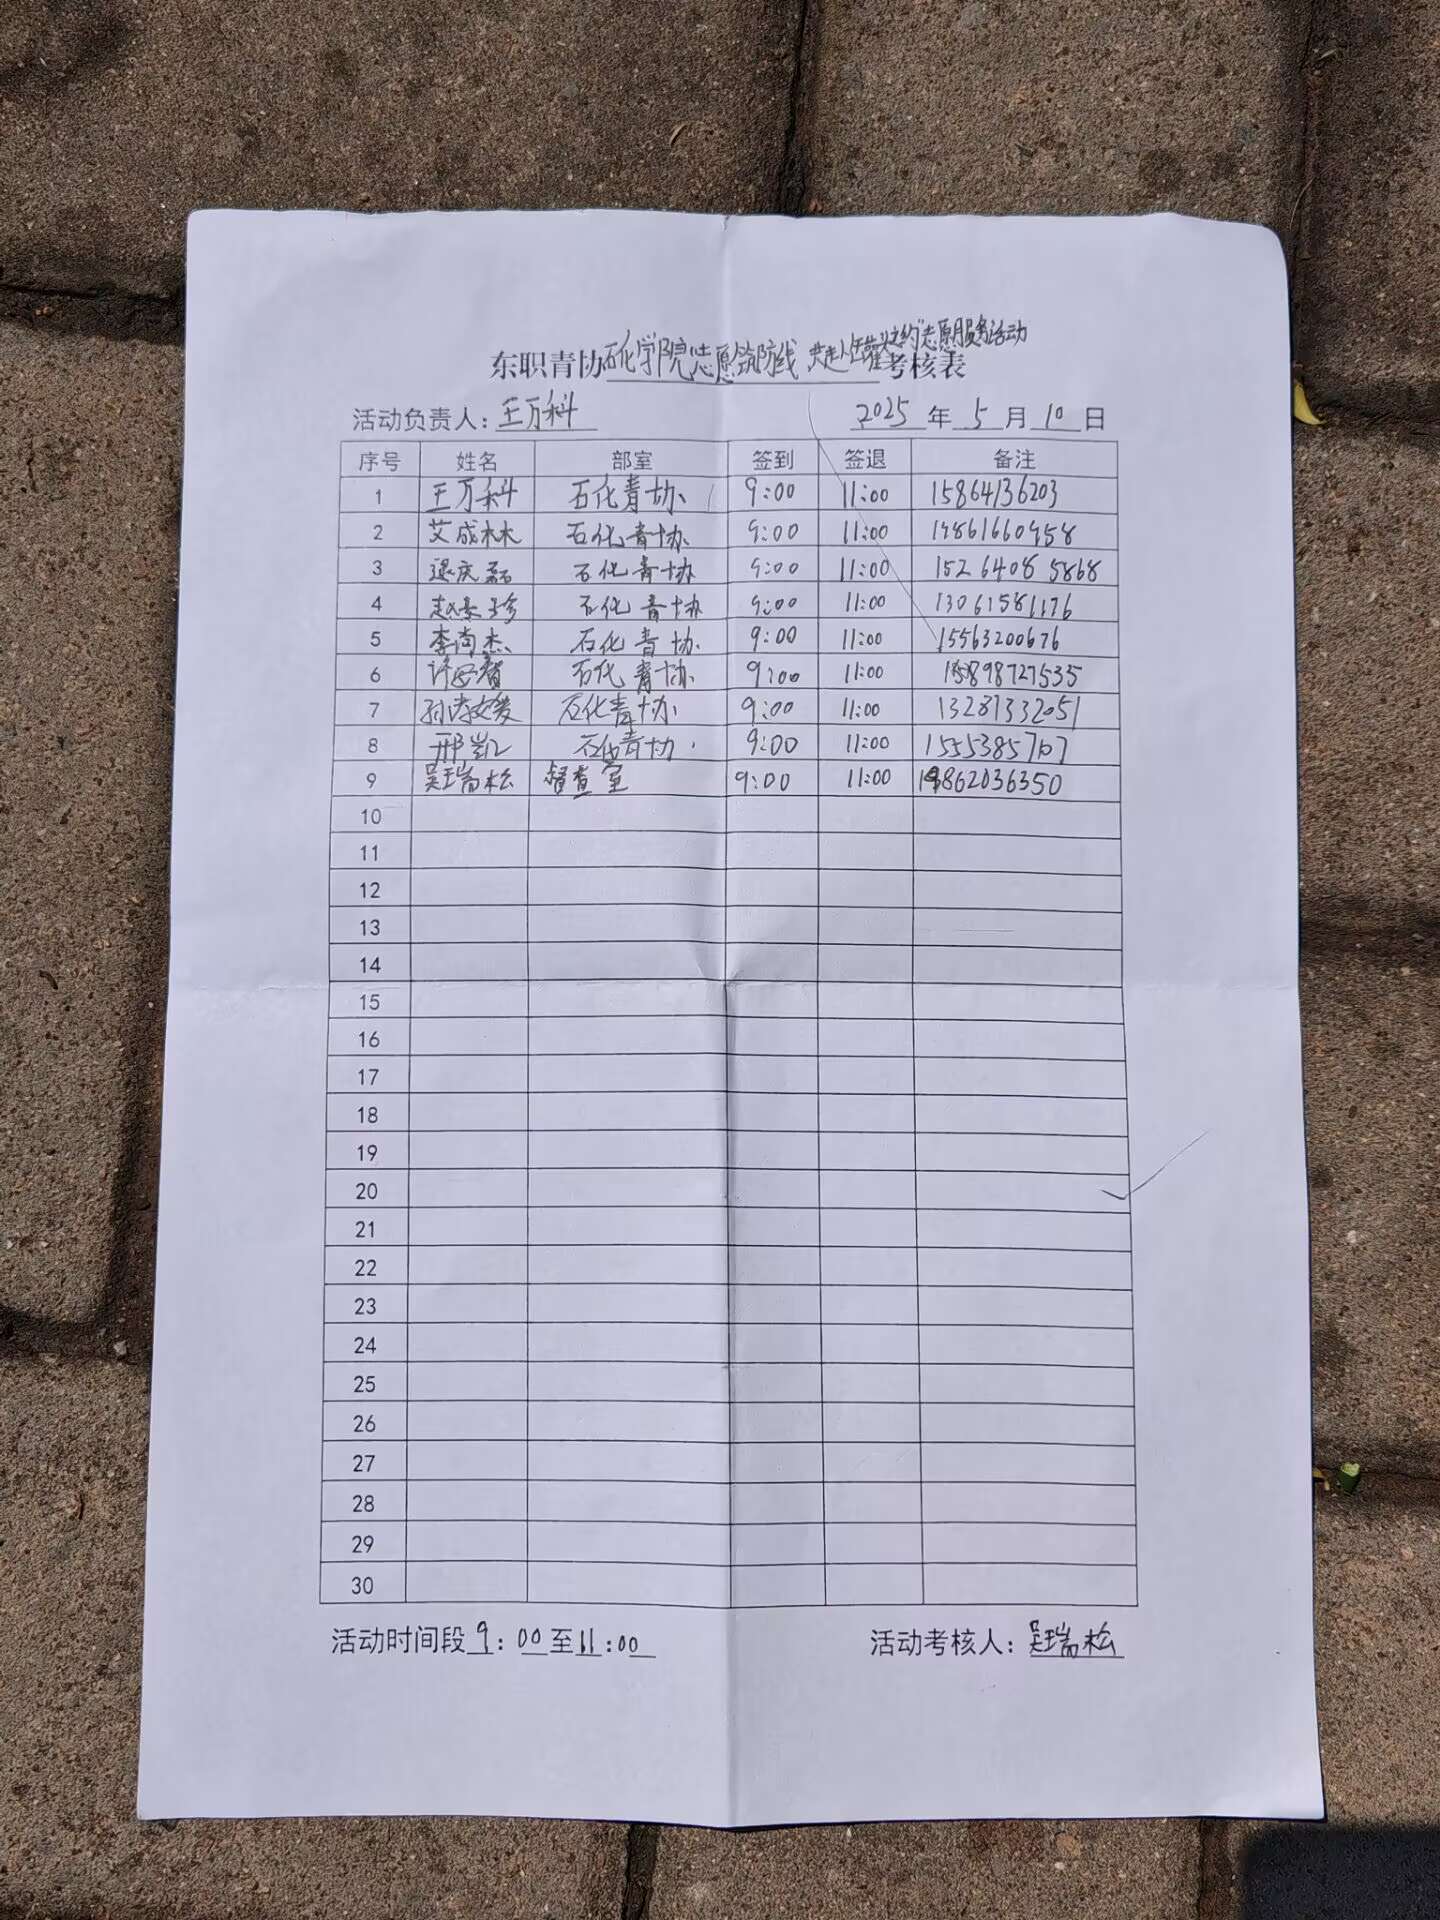 东职青协石化学院志愿筑防线 志愿服务活动考核表
活动负责人：王万科 2025 年 5 月 10 日
序号 姓名 部室 签到 签退 备注
1 王万科 石化青协 9:00 11:00 15864136203
2 艾成林 石化青协 9:00 11:00
3 石化青协 9:00 11:00 15264085868
4 石化青协 9:00 11:00 13061581176
5 李尚杰 石化青协 9:00 11:00 15563200676
6 石化青协 9:00 11:00
7 石化青协 9:00 11:00 13287332051
8 邢凯 石化青协 9:00 11:00
9 吴瑞松 督查室 9:00 11:00
10
11
12
13
14
15
16
17
18
19
20
21
22
23
24
25
26
27
28
29
30
活动时间段 9:00至11:00 活动考核人：吴瑞松